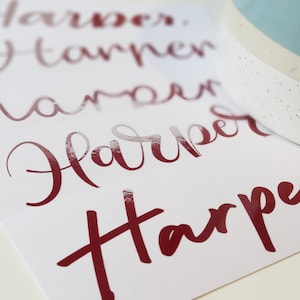 Harper.
Harper
Harper
Harper
Harpe